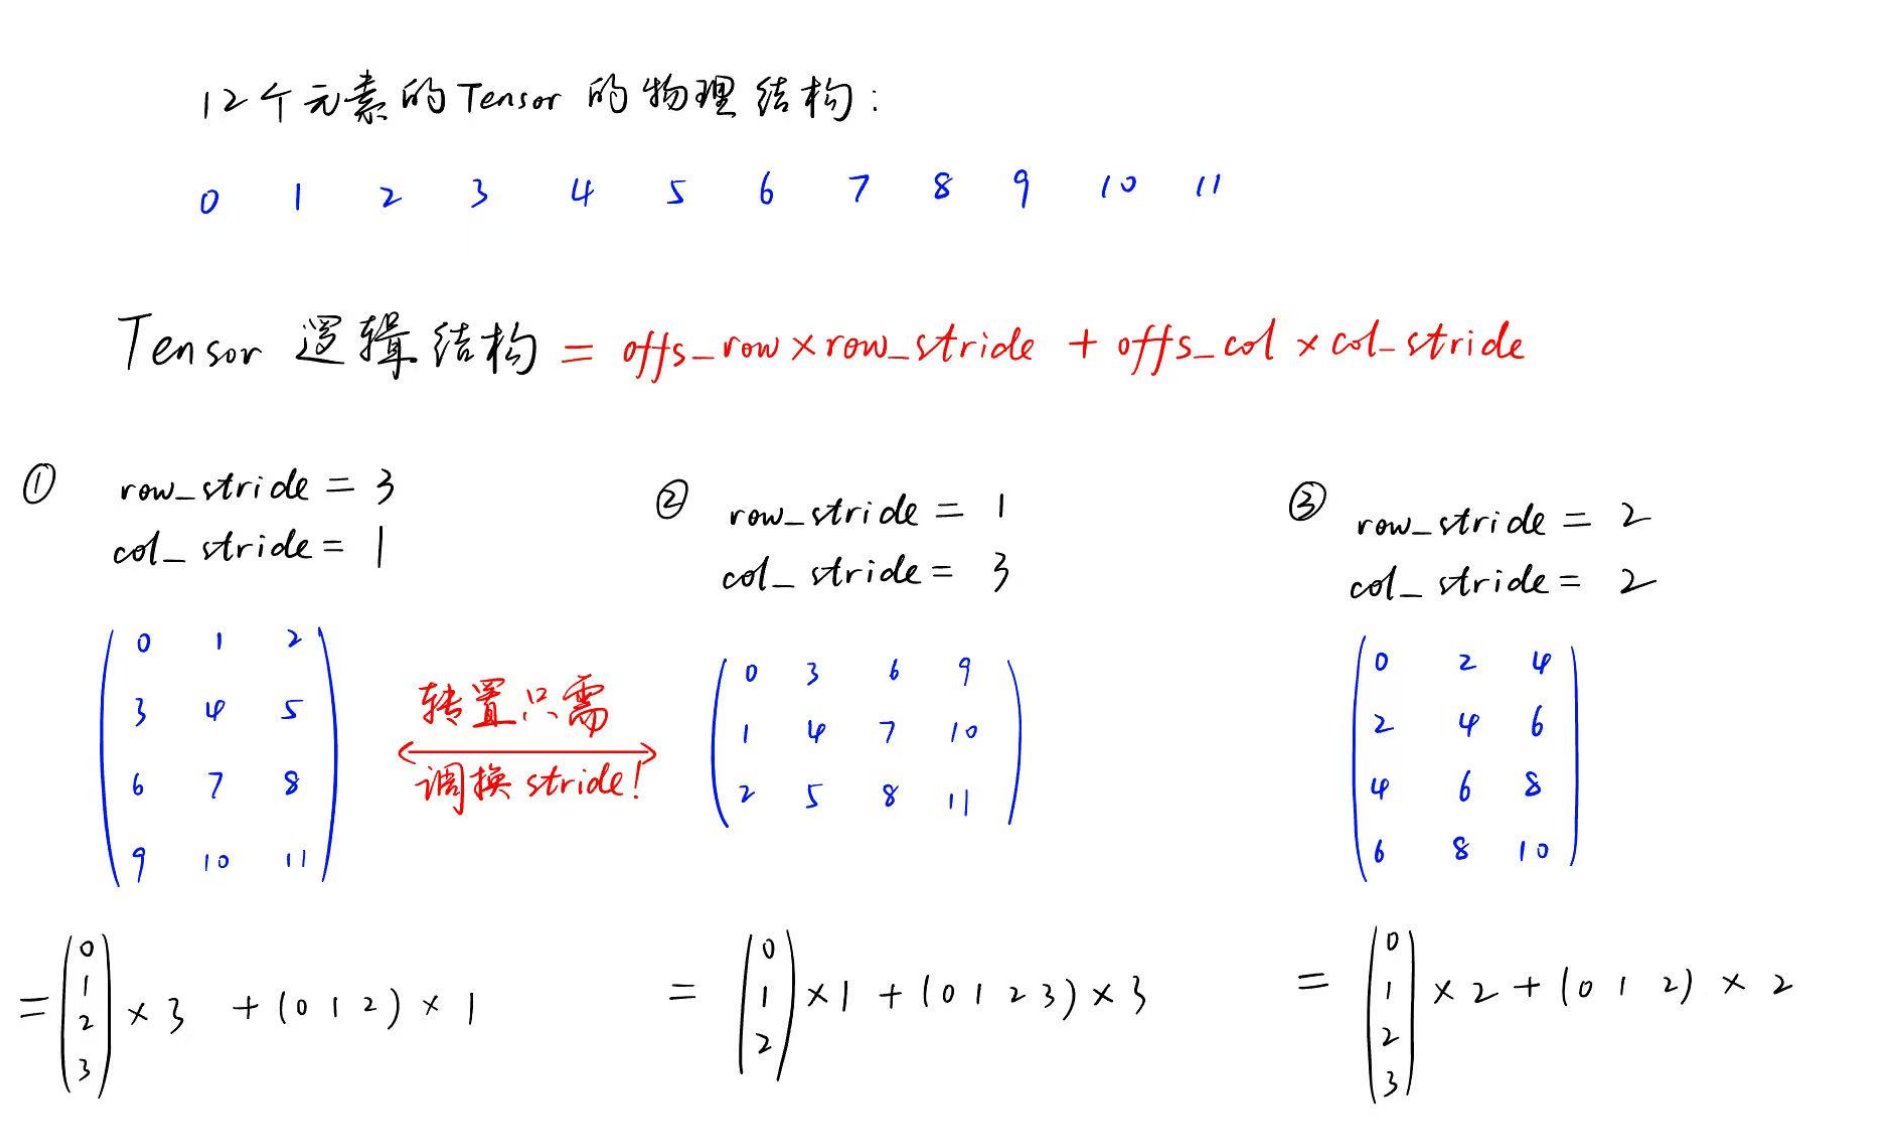 12个元素的Tensor的物理结构:
0 1 2 3 4 5 6 7 8 9 10 11
Tensor 逻辑结构 = offs_row×row_stride + offs_col×col_stride
① row_stride = 3
col_stride = 1
0 1 2
3 4 5
6 7 8
9 10 11
= (0 1 2 3) × 3 + (0 1 2) × 1
转置只需
调换stride!
② row_stride = 1
col_stride = 3
0 3 6 9
1 4 7 10
2 5 8 11
= (0 1 2) ×1 + (0 1 2 3) × 3
③ row_stride = 2
col_stride = 2
0 2 4
2 4 6
4 6 8
6 8 10
= (0 1 2 3) × 2 + (0 1 2) × 2